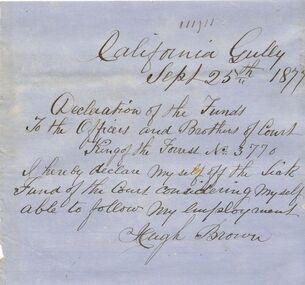 California Gully
Sept 25th 187
Declaration of the Funds
To the Officers and Brothers of Court
King of the Forrest No 3770
I hereby declare myself off the Sick
Fund of the Court considering myself
able to follow my employment
Hugh Brown